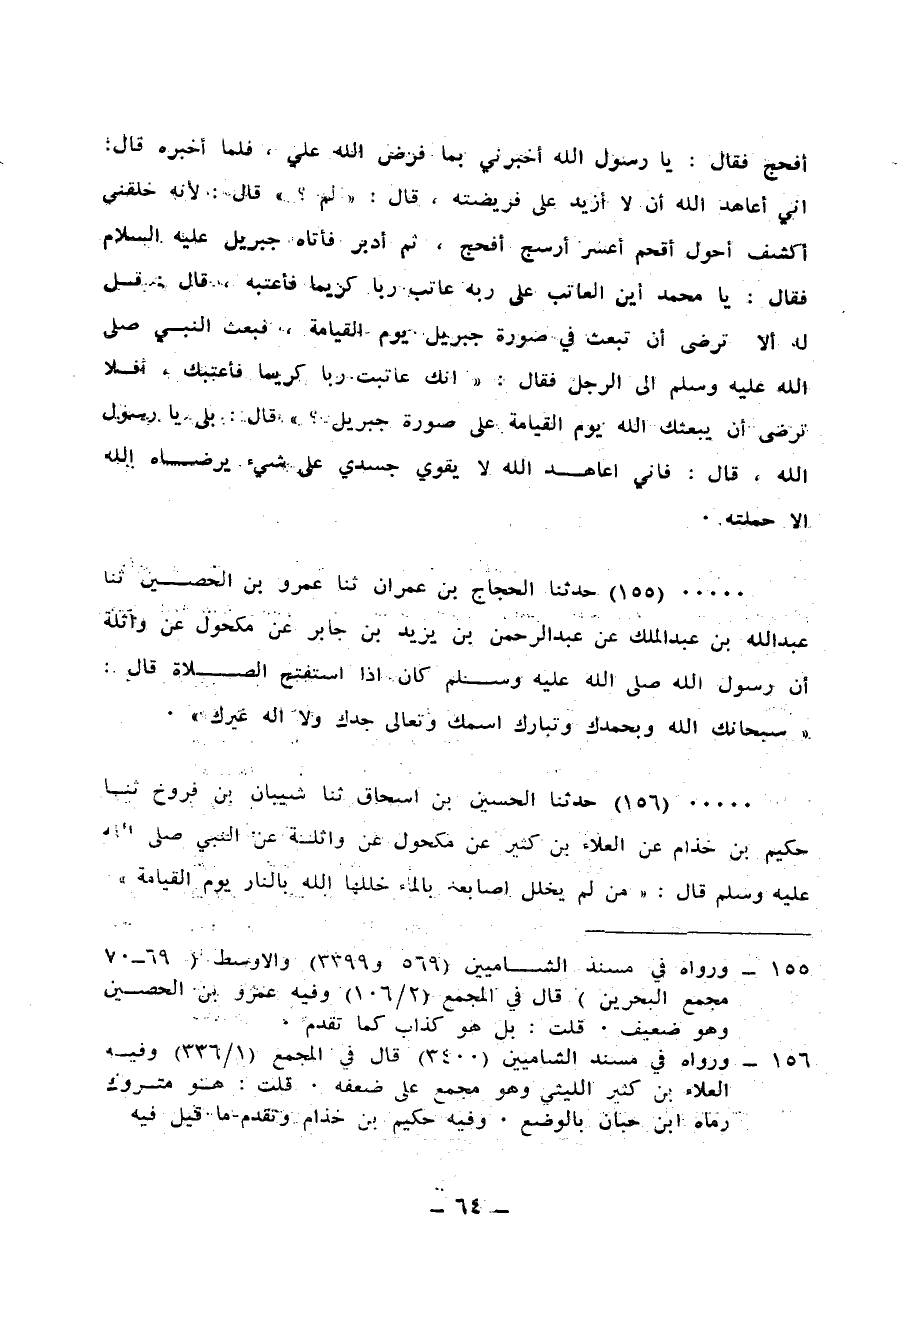 أفحج فقال : يا رسول الله أخبرني بما فرض الله علي ، فلما أخبره قال:
اني أعاهد الله أن لا أزيد على فريضته ، قال : « لم ؟ » قال : لأنه خلقني
أكشف أحول أقحم أعسر أرسح أفحج ، ثم أدبر فأتاه جبريل عليه السلام
فقال : يا محمد أين العاتب على ربه عاتب ربا كريما فأعتبه ، قال : قل
له ألا ترضى أن تبعث في صورة جبريل يوم القيامة ، فبعث النبي صلى
الله عليه وسلم الى الرجل فقال : « انك عاتبت ربا كريما فأعتبك ، أفلا
ترضى أن يبعثك الله يوم القيامة على صورة جبريل ؟ » قال : بلى يا رسول
الله ، قال : فاني اعاهد الله لا يقوي جسدي على شيء يرضاه الله
الا حملته .
..... (١٥٥) حدثنا الحجاج بن عمران ثنا عمرو بن الحصين ثنا
عبدالله بن عبدالملك عن عبدالرحمن بن يزيد بن جابر عن مكحول عن واثلة
أن رسول الله صلى الله عليه وسلم كان اذا استفتح الصلاة قال :
« سبحانك الله وبحمدك وتبارك اسمك وتعالى جدك ولا اله غيرك » .
..... (١٥٦) حدثنا الحسين بن اسحاق ثنا شيبان بن فروخ ثنا
حكيم بن خذام عن العلاء بن كثير عن مكحول عن واثلة عن النبي صلى الله
عليه وسلم قال : « من لم يخلل اصابعه بالماء خللها الله بالنار يوم القيامة »
١٥٥ – ورواه في مسند الشاميين (٥٦٩ و٣٣٩٩) والاوسط ( ٦٩–٧٠
مجمع البحرين ) قال في المجمع (١٠٦/٢) وفيه عمرو بن الحصين
وهو ضعيف . قلت : بل هو كذاب كما تقدم .
١٥٦ – ورواه في مسند الشاميين (٣٤٠٠) قال في المجمع (٢٣٦/١) وفيه
العلاء بن كثير الليثي وهو مجمع على ضعفه . قلت : هو متروك
رماه ابن حبان بالوضع . وفيه حكيم بن خذام وتقدم ما قيل فيه
– ٦٤ –